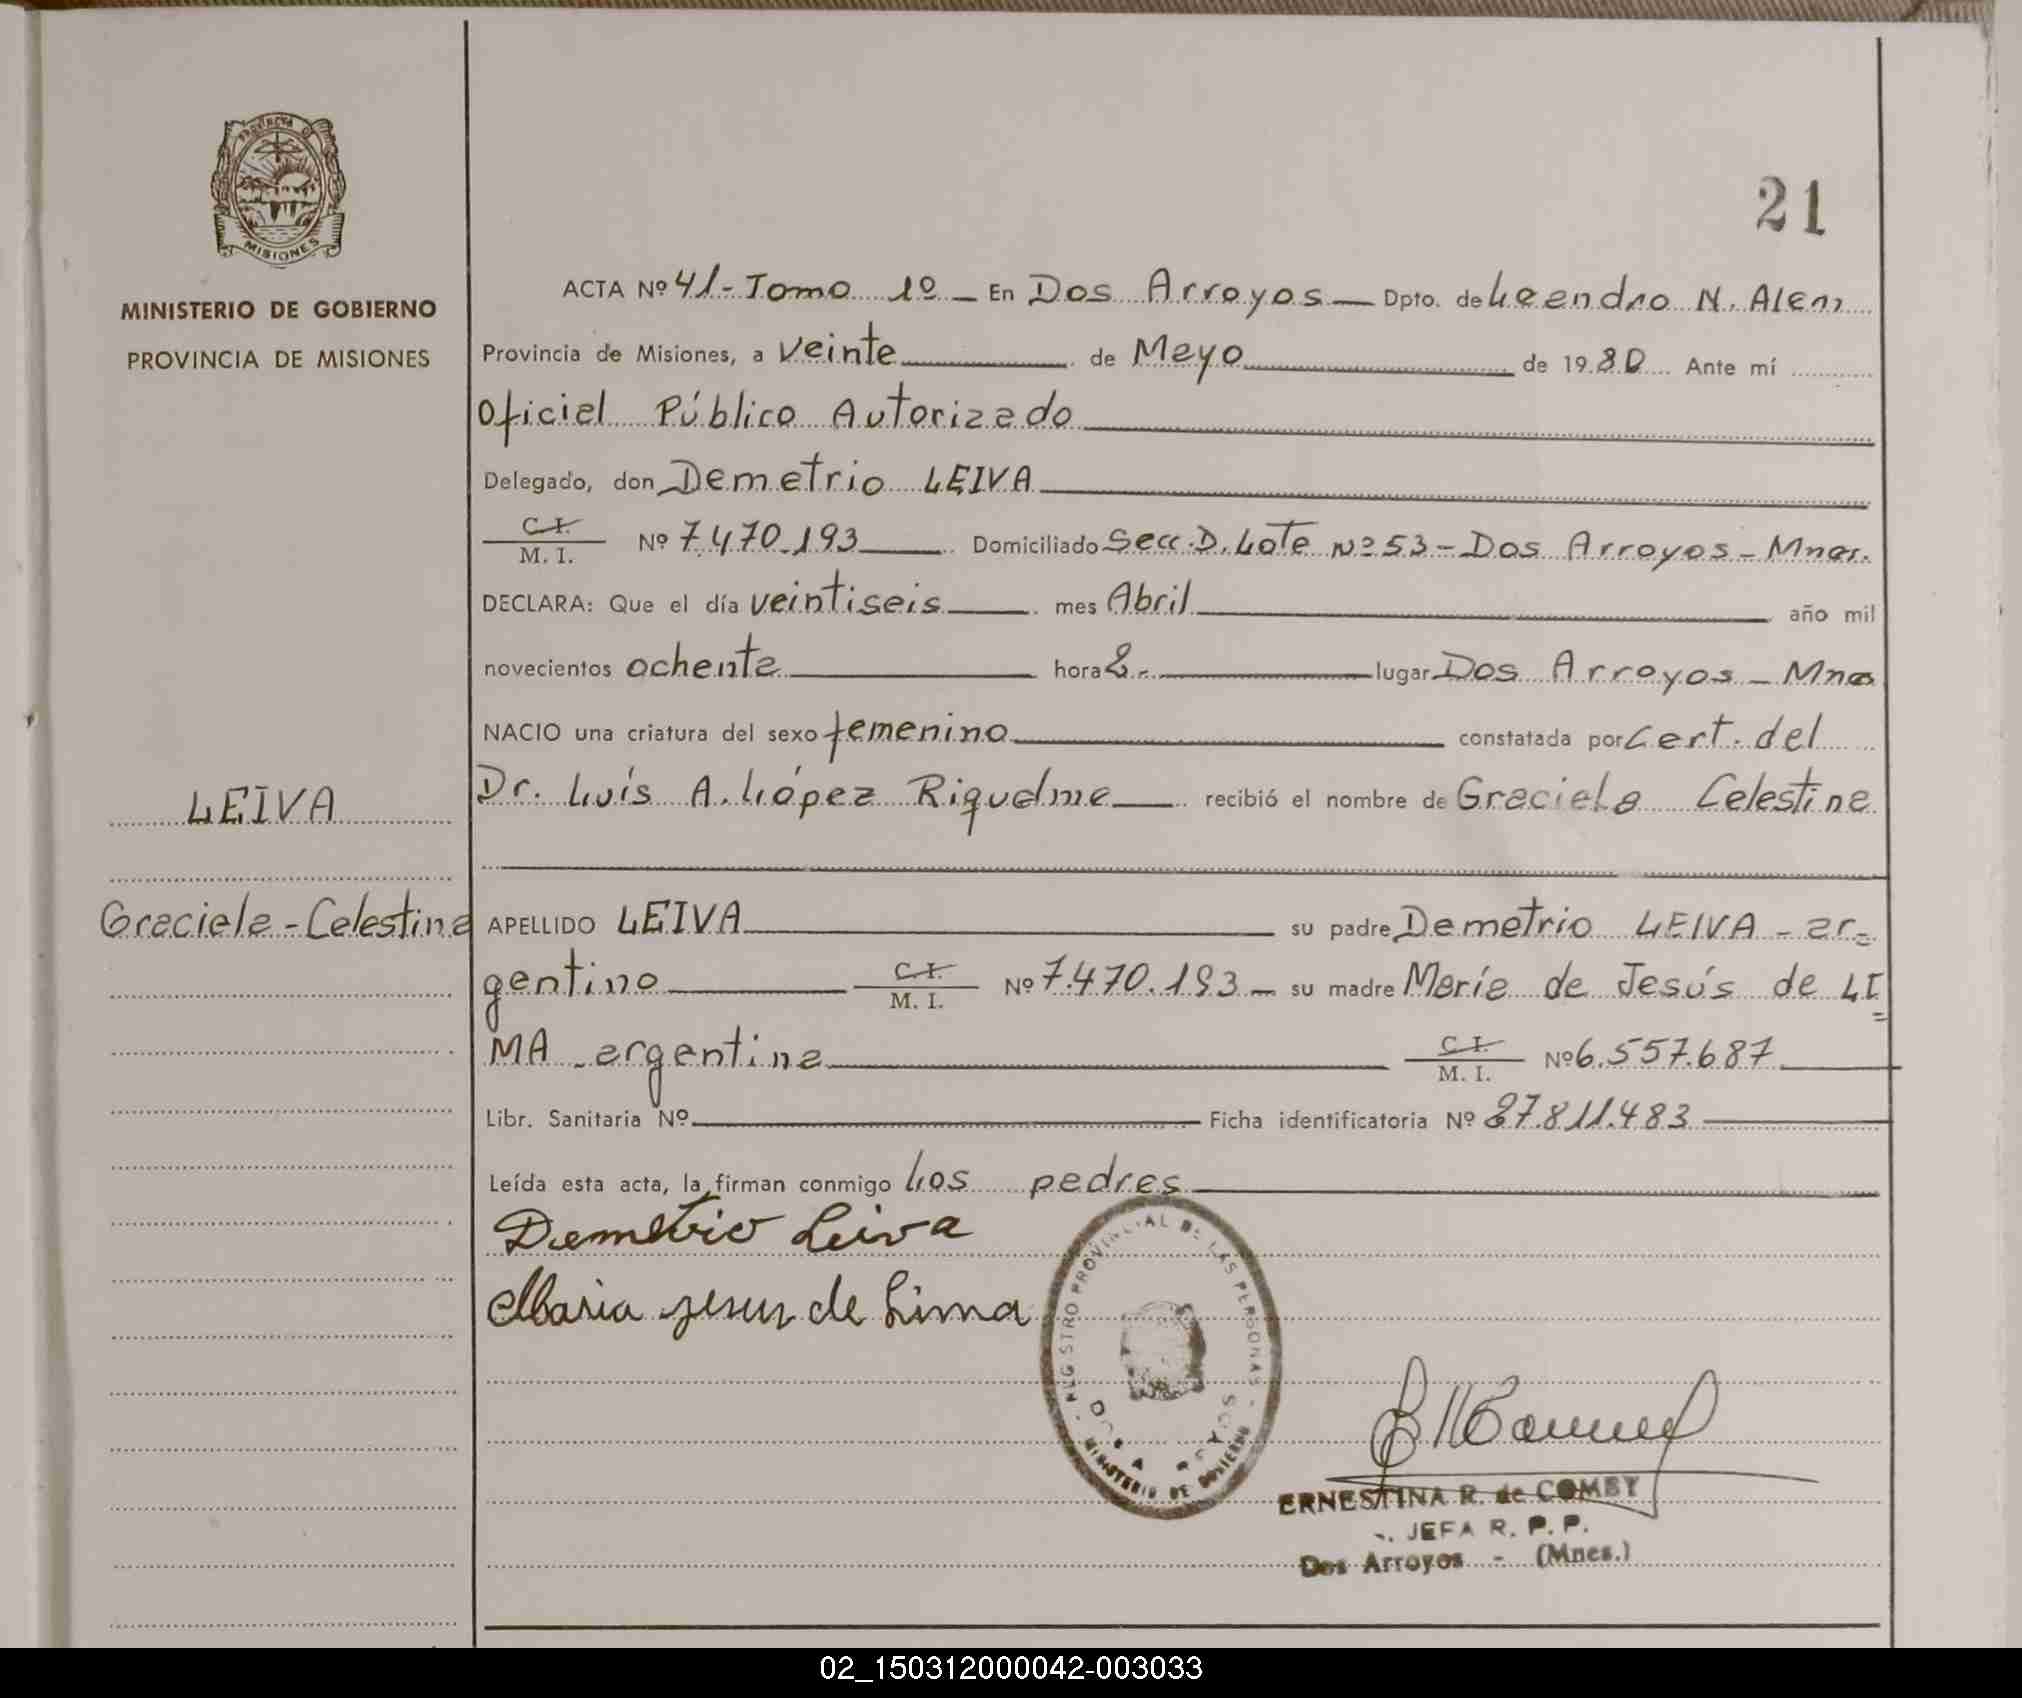 PROVINCIA D
MISIONES
MINISTERIO DE GOBIERNO
PROVINCIA DE MISIONES
21
ACTA Nº 41 - Tomo 1º - En Dos Arroyos - Dpto. de Leandro N. Alem
Provincia de Misiones, a veinte de Mayo de 1980 Ante mí
Oficial Público Autorizado
Delegado, don Demetrio LEIVA
C. I.
M. I. Nº 7.470.193 Domiciliado Secc. D. Lote Nº 53 - Dos Arroyos - Mnes.
DECLARA: Que el día veintiseis mes Abril año mil
novecientos ochenta hora 8.- lugar Dos Arroyos - Mnes
NACIO una criatura del sexo femenino constatada por Cert. del
Dr. Luís A. López Riquelme recibió el nombre de Graciela Celestina
LEIVA
Graciela - Celestina
APELLIDO LEIVA su padre Demetrio LEIVA - ar=
gentino C. I. M. I. Nº 7.470.193 - su madre María de Jesús de LI=
MA - argentina C. I. M. I. Nº 6.557.687
Libr. Sanitaria Nº Ficha identificatoria Nº 27.811.483
Leída esta acta, la firman conmigo Los padres
Demetrio Leiva
Maria Jesus de Lima
REGISTRO PROVINCIAL DE LAS PERSONAS
DOS ARROYOS
MINISTERIO DE GOBIERNO
ERNESTINA R. de COMBY
JEFA R. P. P.
Dos Arroyos - (Mnes.)
02_150312000042-003033